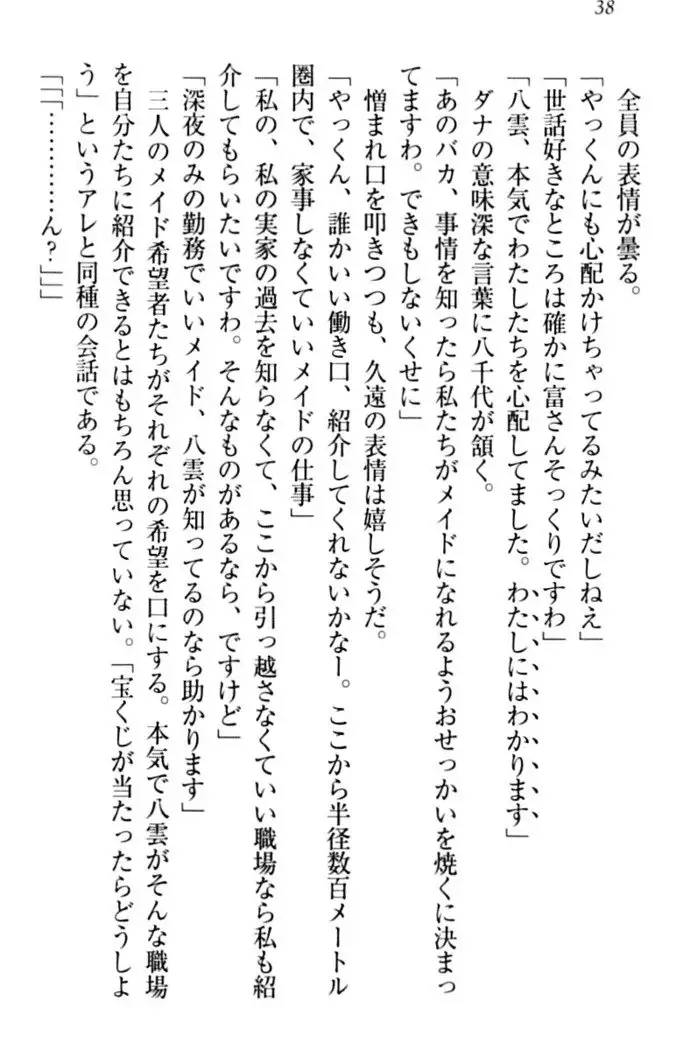 38
全員の表情が曇る。
「やっくんにも心配かけちゃってるみたいだしねえ」
「世話好きなところは確かに富さんそっくりですわ」
「八雲、本気でわたしたちを心配してました。わたしにはわかります」
ダナの意味深な言葉に八千代が頷く。
「あのバカ、事情を知ったら私たちがメイドになれるようおせっかいを焼くに決まっ
てますわ。できもしないくせに」
憎まれ口を叩きつつも、久遠の表情は嬉しそうだ。
「やっくん、誰かいい働き口、紹介してくれないかなー。ここから半径数百メートル
圏内で、家事しなくていいメイドの仕事」
「私の、私の実家の過去を知らなくて、ここから引っ越さなくていい職場なら私も紹
介してもらいたいですわ。そんなものがあるなら、ですけど」
「深夜のみの勤務でいいメイド、八雲が知ってるのなら助かります」
三人のメイド希望者たちがそれぞれの希望を口にする。本気で八雲がそんな職場
を自分たちに紹介できるとはもちろん思っていない。「宝くじが当たったらどうしよ
う」というアレと同種の会話である。
「「「…………ん？」」」